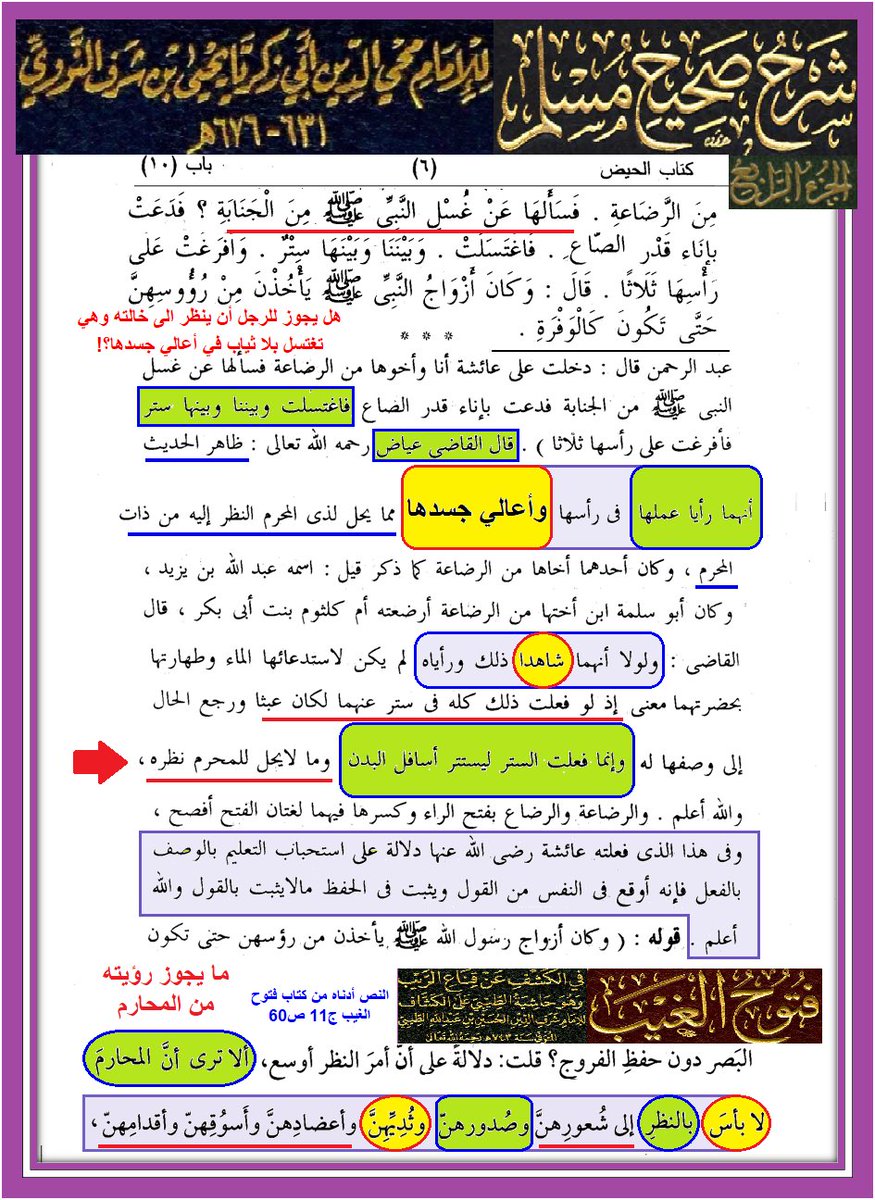 شرح صحيح مسلم
للإمام محيي الدين أبي زكريا يحيى بن شرف النووي
٦٣١-٦٧٦هـ
الجزء الرابع
كتاب الحيض (٦) باب (١٠)
مِنَ الرَّضَاعَةِ . فَسَأَلَهَا عَنْ غُسْلِ النَّبِيِّ ﷺ مِنَ الْجَنَابَةِ ؟ فَدَعَتْ
بِإِنَاءٍ قَدْرِ الصَّاعِ . فَاغْتَسَلَتْ . وَبَيْنَنَا وَبَيْنَهَا سِتْرٌ . وَأَفْرَغَتْ عَلَى
رَأْسِهَا ثَلَاثًا . قَالَ : وَكَانَ أَزْوَاجُ النَّبِيِّ ﷺ يَأْخُذْنَ مِنْ رُؤُوسِهِنَّ
حَتَّى تَكُونَ كَالْوَفْرَةِ .
* * *
هل يجوز للرجل أن ينظر الى خالته وهي
تغتسل بلا ثياب في أعالي جسدها؟!
عبد الرحمن قال : دخلت على عائشة أنا وأخوها من الرضاعة فسألها عن غسل
النبى ﷺ من الجنابة فدعت بإناء قدر الصاع فاغتسلت وبيننا وبينها ستر
فأفرغت على رأسها ثلاثا ) . قال القاضى عياض رحمه الله تعالى : ظاهر الحديث
أنهما رأيا عملها فى رأسها وأعالي جسدها مما يحل لذى المحرم النظر إليه من ذات
المحرم ، وكان أحدهما أخاها من الرضاعة كما ذكر قيل : اسمه عبد الله بن يزيد ،
وكان أبو سلمة ابن أختها من الرضاعة أرضعته أم كلثوم بنت أبى بكر ، قال
القاضى : ولولا أنهما شاهدا ذلك ورأياه لم يكن لاستدعائها الماء وطهارتها
بحضرتهما معنى إذ لو فعلت ذلك كله فى ستر عنهما لكان عبثا ورجع الحال
إلى وصفها له وإنما فعلت الستر ليستتر أسافل البدن وما لايحل للمحرم نظره ،
والله أعلم . والرضاعة والرضاع بفتح الراء وكسرها فيهما لغتان الفتح أفصح ،
وفى هذا الذى فعلته عائشة رضى الله عنها دلالة على استحباب التعليم بالوصف
بالفعل فإنه أوقع فى النفس من القول ويثبت فى الحفظ مالايثبت بالقول والله
أعلم . قوله : ( وكان أزواج رسول الله ﷺ يأخذن من رؤسهن حتى تكون
ما يجوز رؤيته
من المحارم
النص أدناه من كتاب فتوح
الغيب ج11 ص60
فتوح الغيب
في الكشف عن قناع الريب
وهو حاشية الطيبي على الكشاف
للإمام شرف الدين الحسين بن عبد الله الطيبي
المتوفى سنة ٧٤٣هـ رحمه الله تعالى
البَصر دون حفظِ الفروج؟ قلت: دلالةً على أنّ أمرَ النظر أوسع، ألا ترى أنَّ المحارمَ
لا بأسَ بالنظرِ إلى شُعورِهنَّ وصُدورهنّ وثُدِيِّهِنَّ وأعضادِهنَّ وأَسوُقِهنّ وأقدامِهنّ،